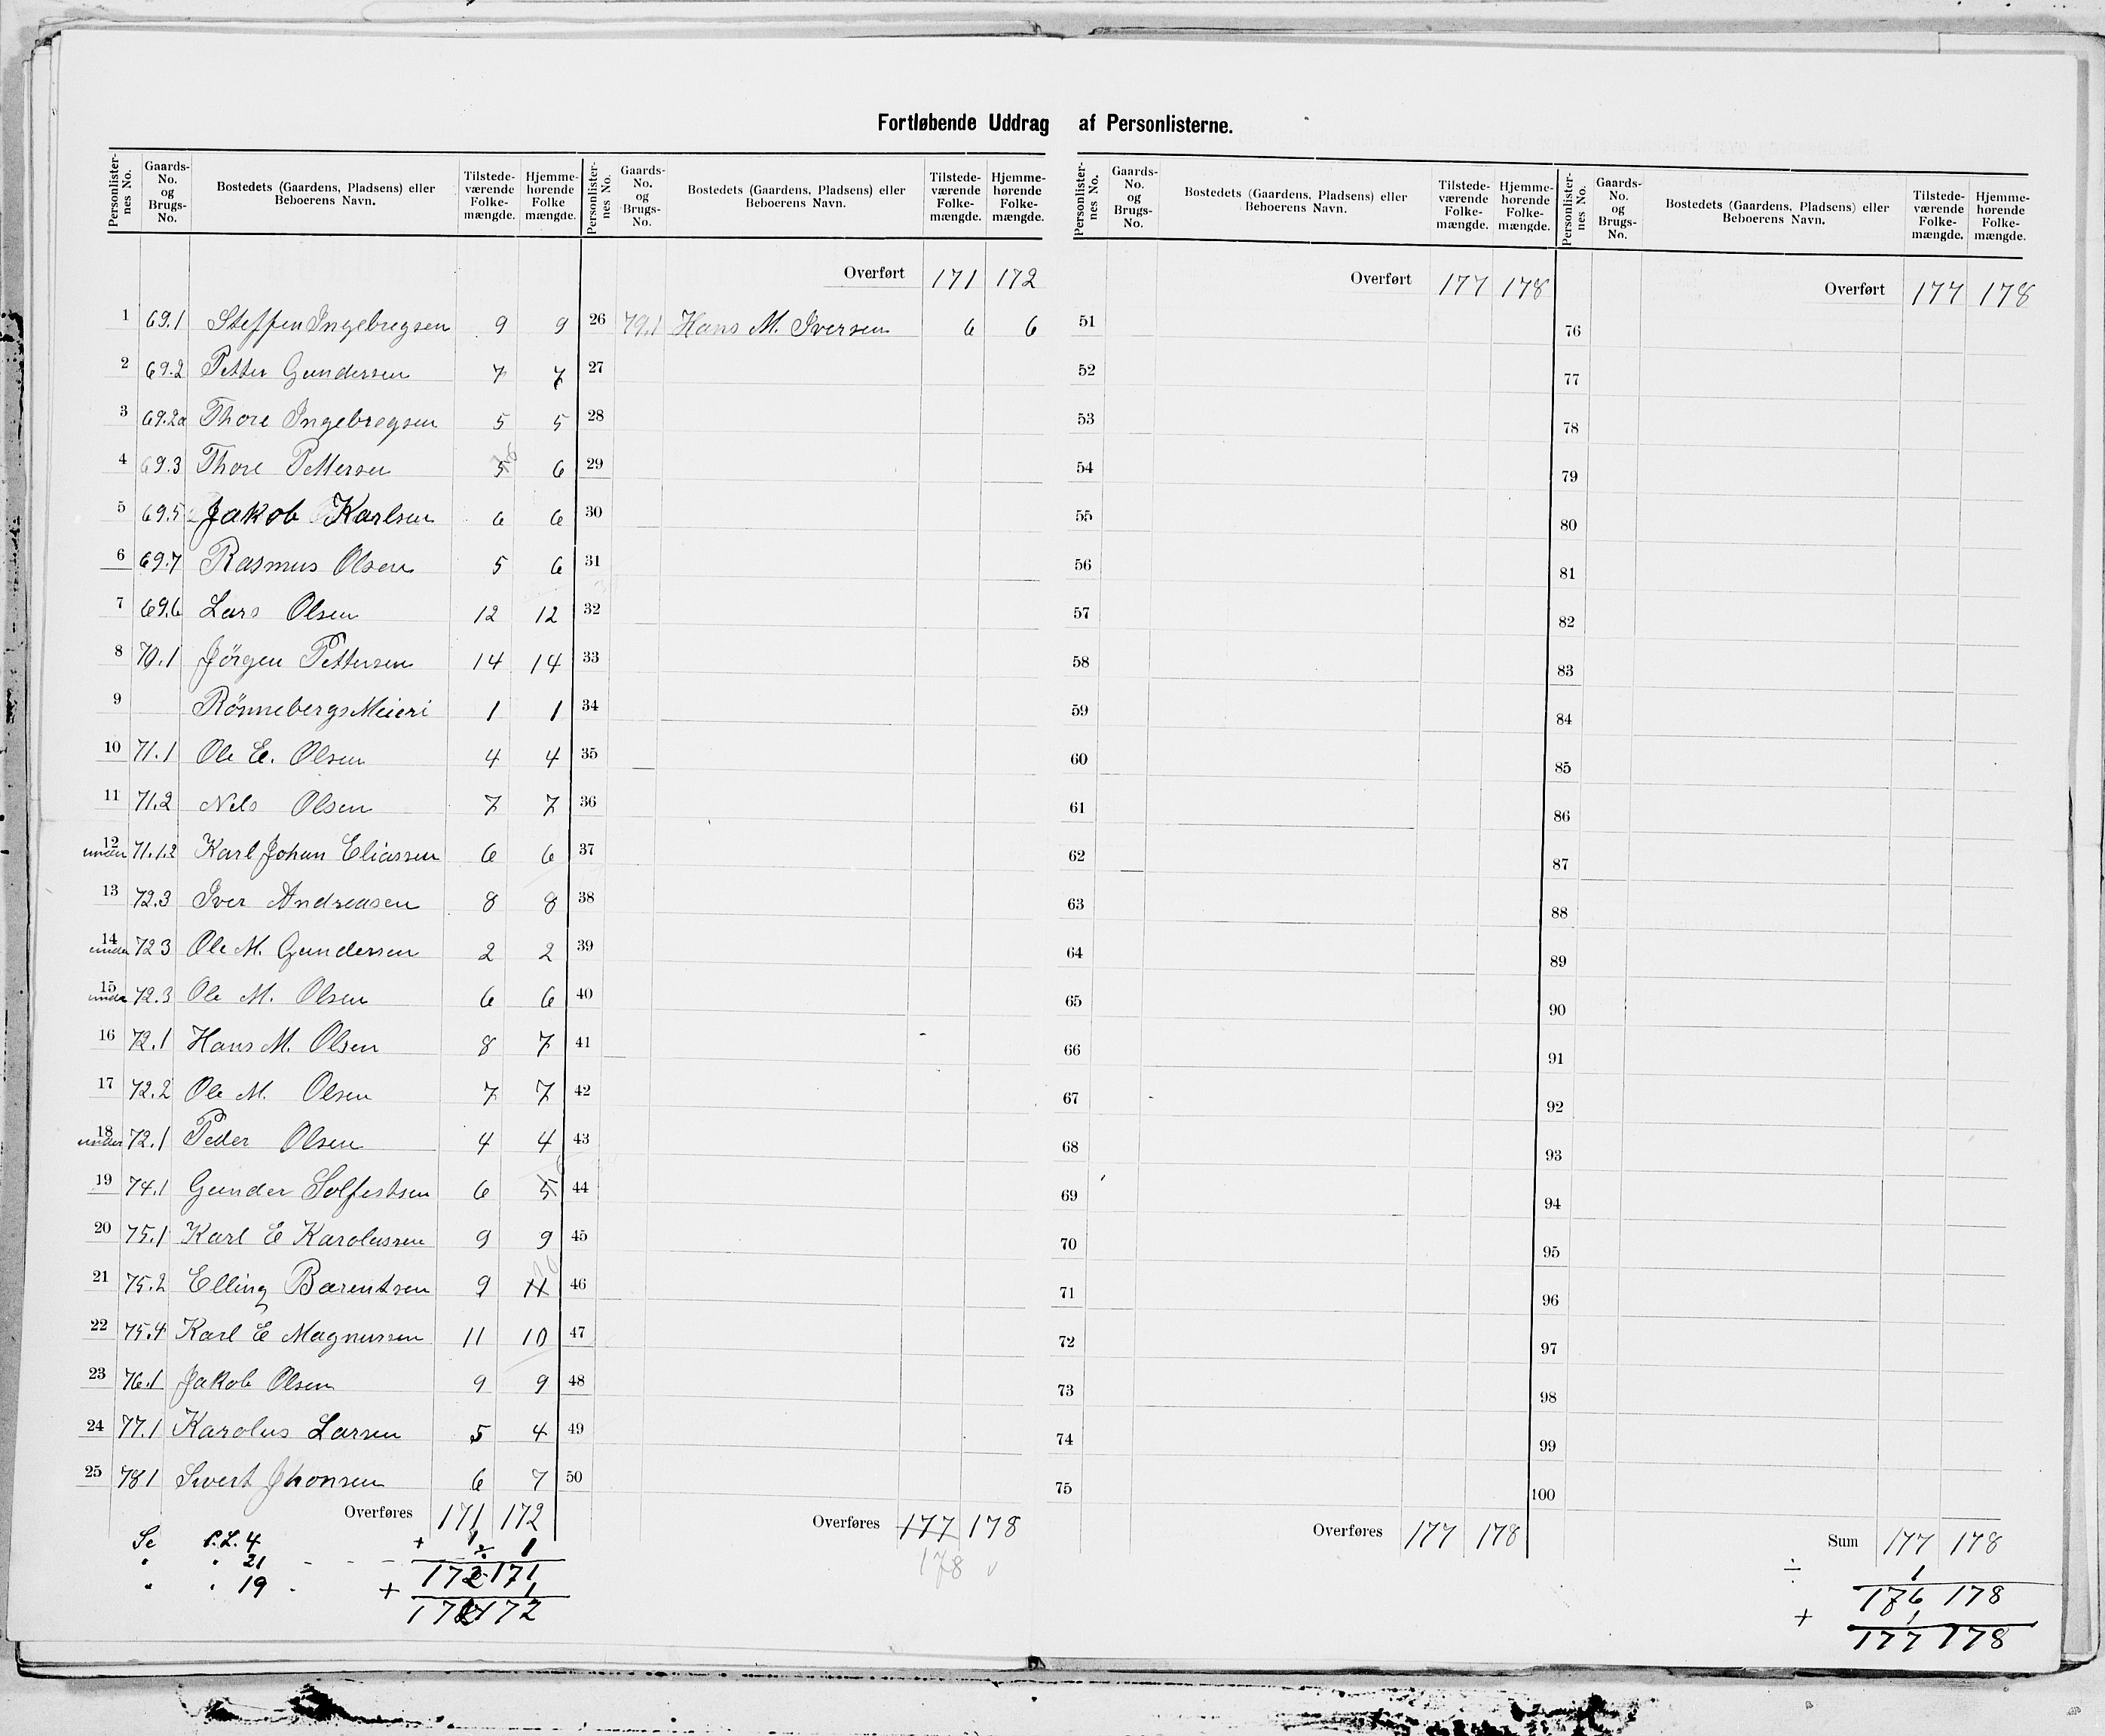 Fortløbende Uddrag af Personlisterne.
Personlister-nes No. Gaards-No. og Brugs-No. Bostedets (Gaardens, Pladsens) eller Beboerens Navn. Tilstede-værende Folke-mængde. Hjemme-hørende Folke mængde.
Personlister-nes No. Gaards-No. og Brugs-No. Bostedets (Gaardens, Pladsens) eller Beboerens Navn. Tilstede-værende Folke-mængde. Hjemme-hørende Folke-mængde.
Personlister-nes No. Gaards-No. og Brugs-No. Bostedets (Gaardens, Pladsens) eller Beboerens Navn. Tilstede-værende Folke-mængde. Hjemme-hørende Folke-mængde.
Personlister-nes No. Gaards-No. og Brugs-No. Bostedets (Gaardens, Pladsens) eller Beboerens Navn. Tilstede-værende Folke-mængde. Hjemme-hørende Folke-mængde.
1 69.1 Steffen Ingebregsen 9 9
2 69.2 Petter Gundersen 7 7
3 69.2a Thore Ingebregsen 5 5
4 69.3 Thore Pettersen 5 6 6
5 69.5 Jakob Karlsen 6 6
6 69.7 Rasmus Olsen 5 6
7 69.6 Lars Olsen 12 12
8 70.1 Jörgen Pettersen 14 14
9 Rönnebergs Meieri 1 1
10 71.1 Ole E. Olsen 4 4
11 71.2 Nels Olsen 7 7
12 under 71.1.2 Karl Johan Eliassen 6 6
13 72.3 Iver Andreasen 8 8
14 under 72 3 Ole M. Gundersen 2 2
15 under 72.3 Ole M. Olsen 6 6
16 72.1 Hans M. Olsen 8 7
17 72.2 Ole M. Olsen 7 7
18 under 72.1 Peder Olsen 4 4
19 74.1 Gunder Solfestsen 6 5 6
20 75.1 Karl E Karolussen 9 9
21 75.2 Elling Barentsen 9 11 10
22 75.4 Karl E Magnussen 11 10
23 76.1 Jakob Olsen 9 9
24 77.1 Karolus Larsen 5 4
25 78 1 Sivert Jhonsen 6 7
Overføres 171 172
Se P.L. 4 + 1 ÷ 1
" " 21 - - - 172 171
" " 19 - + 1
172 172
Overført 171 172
26 79.1 Hans M. Iversen 6 6
27
28
29
30
31
32
33
34
35
36
37
38
39
40
41
42
43
44
45
46
47
48
49
50
Overføres 177 178
178 v
Overført 177 178
51
52
53
54
55
56
57
58
59
60
61
62
63
64
65
66
67
68
69
70
71
72
73
74
75
Overføres 177 178
Overført 177 178
76
77
78
79
80
81
82
83
84
85
86
87
88
89
90
91
92
93
94
95
96
97
98
99
100
Sum 177 178
÷ 1
176 178
+ 1
177 178